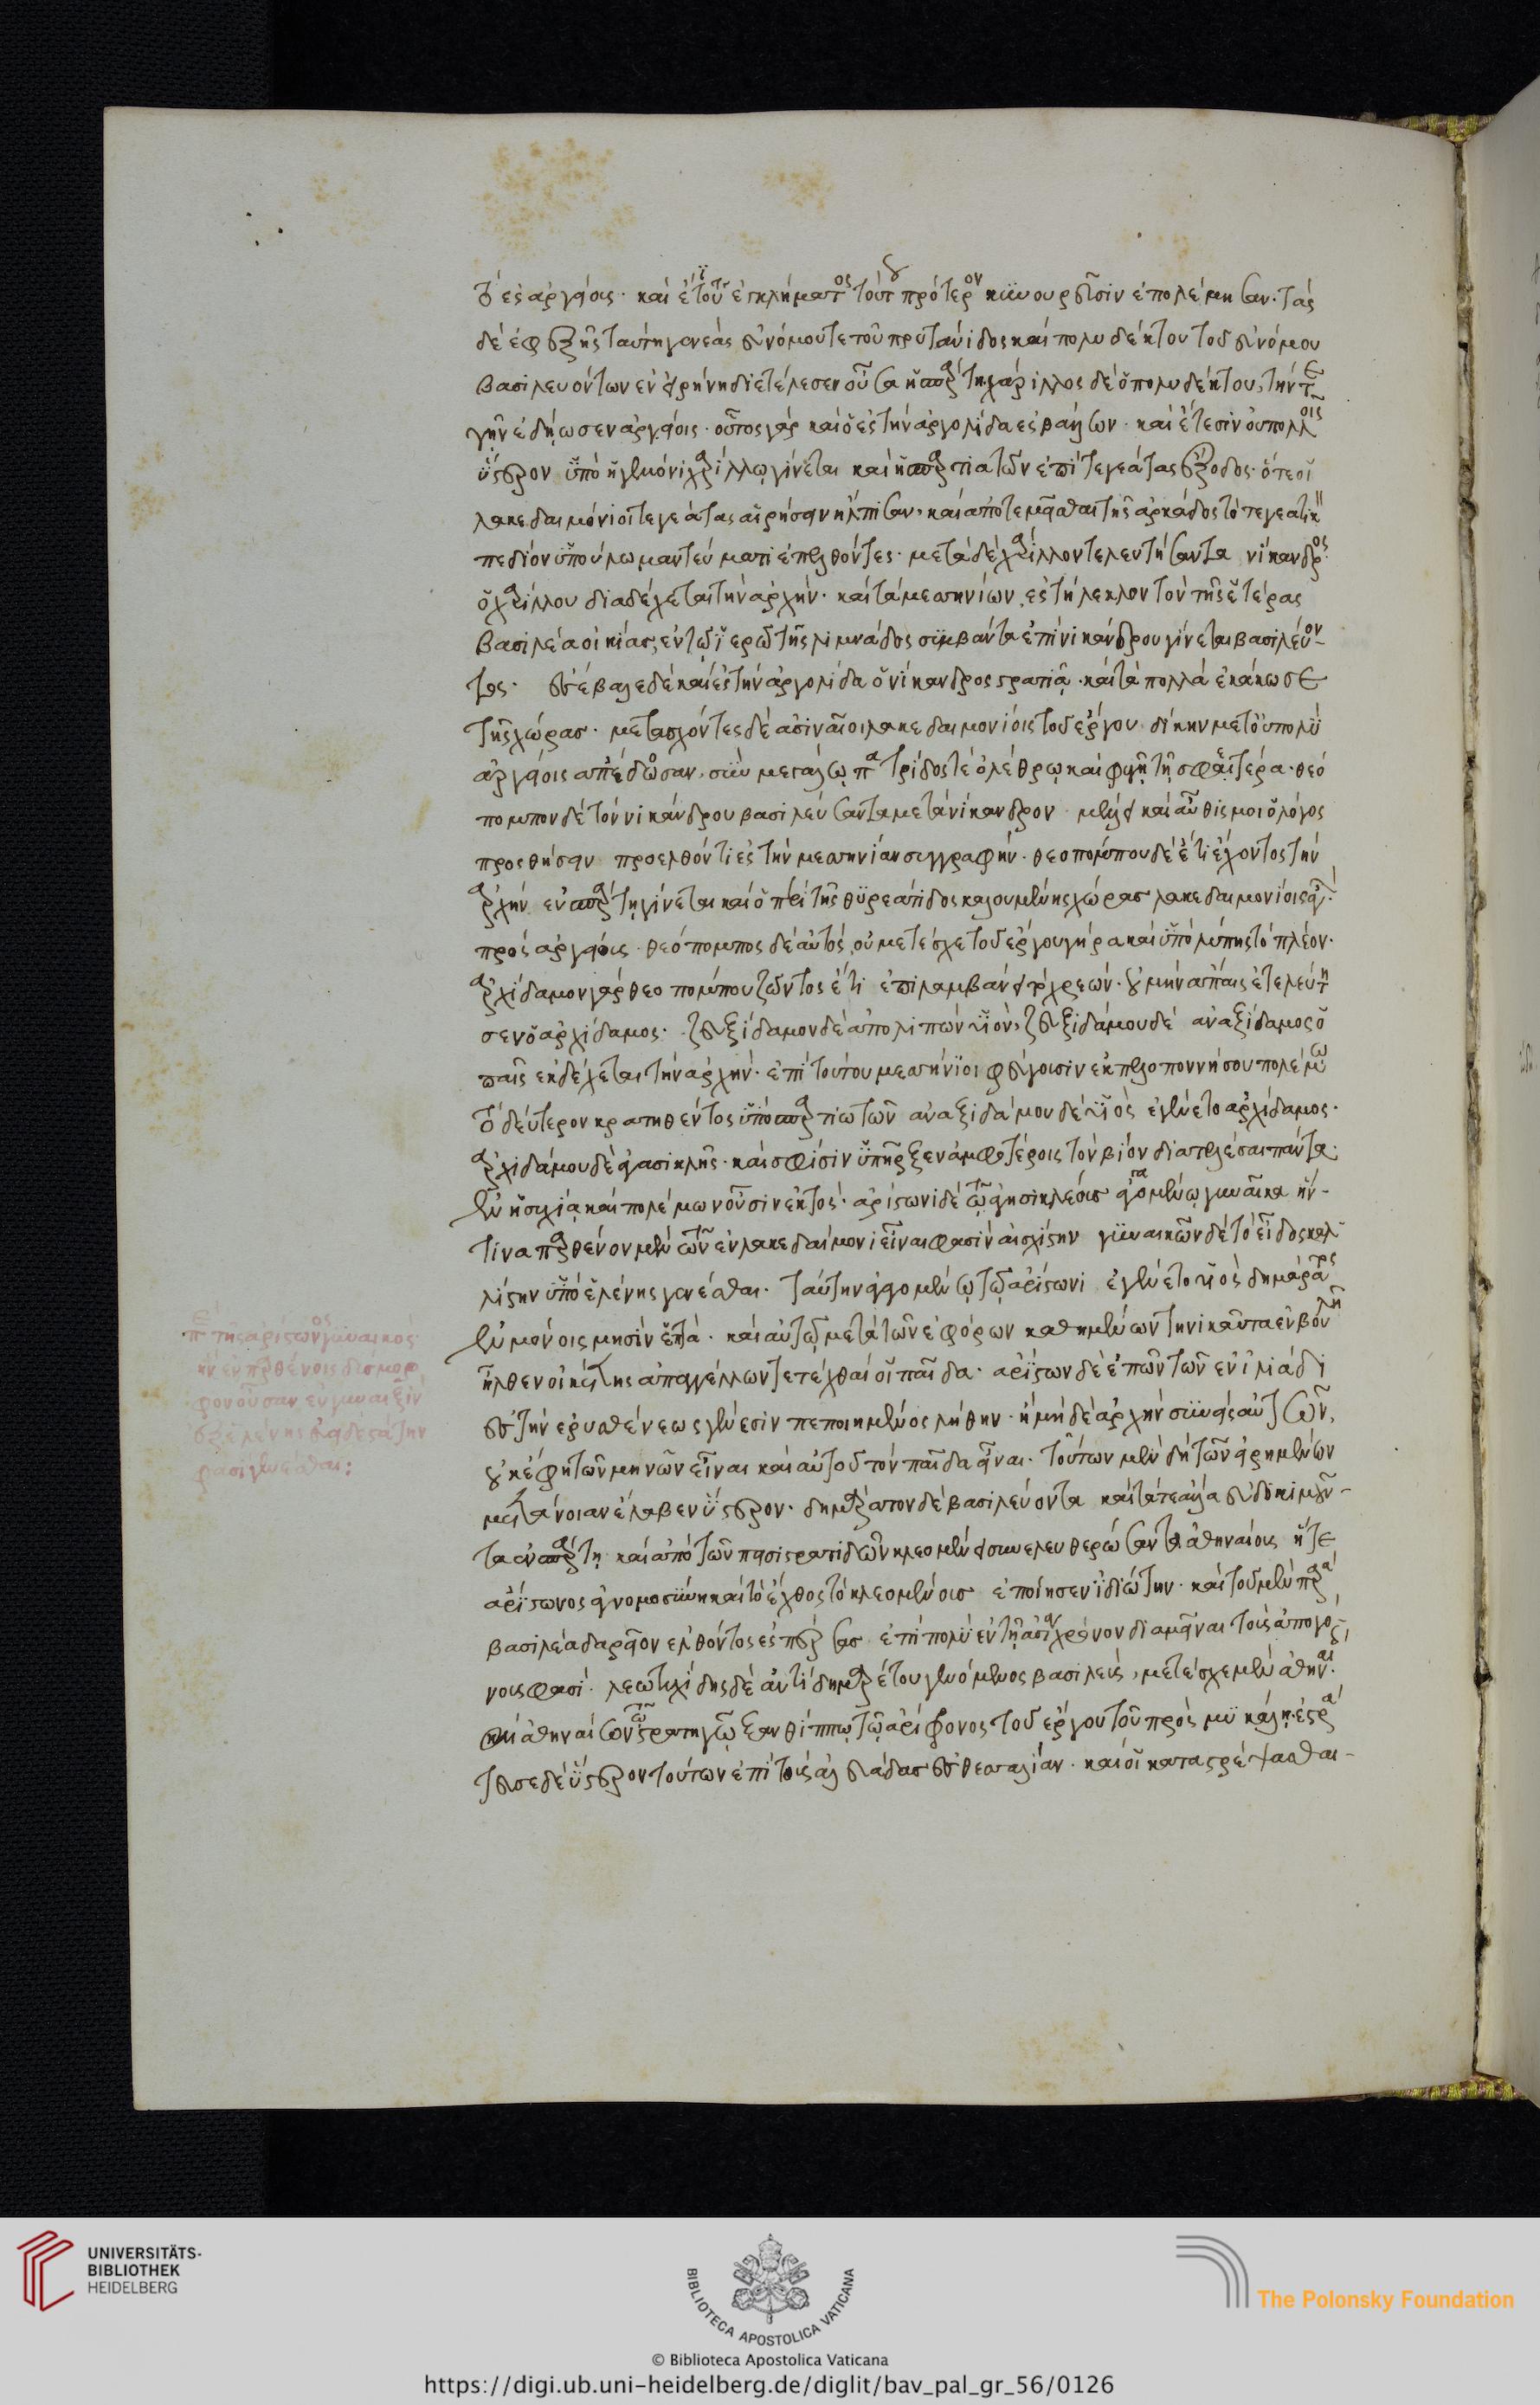 τὸ ἐς ἀργείοις. καὶ ἔτι τοῦ ἐγκλήματος τούτου πρότερον κυνουρεῦσιν ἐπολέμησαν. τὰς
δὲ ἐφεξῆς ταύτη γενεὰς εὐνόμου τε τοῦ πρυτάνιδος καὶ πολυδέκτου τοῦ εὐνόμου
βασιλευόντων ἐν εἰρήνη διετέλεσεν οὖσα ἡ σπάρτη χάριλλος δὲ ὁ πολυδέκτου, τήν τε
γῆν ἐδήωσεν ἀργείοις. οὗτος γὰρ καὶ ὁ ἐς τὴν ἀργολίδα ἐσβαλών. καὶ ἔτεσιν οὐ πολλοῖς
ὕστερον ὑπὸ ἡγεμόνι χαρίλλῳ γίνεται καὶ ἡ σπαρτιατῶν ἐπὶ τεγεάτας ἔξοδος. ὅτε οἱ
λακεδαιμόνιοι τεγεάτας αἱρήσειν ἤλπισαν, καὶ ἀποτεμεῖσθαι τῆς ἀρκάδος τὸ τεγεατικὸ
πεδίον ὑπούλῳ μαντεύματι ἐπελθόντες. μετὰ δὲ χάριλλον τελευτήσαντα νίκανδρος
ὁ χαρίλλου διαδέχεται τὴν ἀρχήν. καὶ τὰ μεσσηνίων ἐς τήλεκλον τὸν τῆς ἑτέρας
βασιλέα οἰκίας, ἐν τῷ ἱερῷ τῆς λιμνάδος συμβάντα ἐπὶ νικάνδρου γίνεται βασιλεύον
τος. ἐσέβαλε δὲ καὶ ἐς τὴν ἀργολίδα ὁ νίκανδρος στρατιᾷ. καὶ τὰ πολλὰ ἐκάκωσε
τῆς χώρας. μετασχόντες δὲ ἀσιναῖοι λακεδαιμονίοις τοῦ ἔργου δίκην μετ' οὐ πολὺ
ἀργείοις ἀπέδοσαν, σὺν μεγάλῳ πατρίδος τε ὀλέθρῳ καὶ φυγῇ τῇ σφετέρα. θεό
πομπον δὲ τὸν νικάνδρου βασιλεύσαντα μετὰ νίκανδρον μέλλει καὶ αὖθίς μοι ὁ λόγος
προσθήσειν προελθόντι ἐς τὴν μεσσηνίαν συγγραφήν. θεοπόμπου δὲ ἔτι ἔχοντος τὴν
ἀρχὴν ἐν σπάρτῃ γίνεται καὶ ὁ περὶ τῆς θυρεάτιδος καλουμένης χώρας λακεδαιμονίοις ἀγὼν
πρὸς ἀργείοις. θεόπομπος δὲ αὐτὸς οὐ μετέσχε τοῦ ἔργου γήρᾳ καὶ ὑπὸ λύπης τὸ πλέον.
ἀρχίδαμον γὰρ θεοπόμπου ζῶντος ἔτι ἐπιλαμβάνει τὸ χρεών. οὐ μὴν ἄπαις ἐτελεύτη
σεν ὁ ἀρχίδαμος. ζευξίδαμον δὲ ἀπολιπὼν υἱὸν, ζευξιδάμου δὲ ἀναξίδαμος ὁ
παῖς ἐκδέχεται τὴν ἀρχήν. ἐπὶ τούτου μεσσήνιοι φεύγουσιν ἐκ πελοποννήσου πολέμω
τὸ δεύτερον κρατηθέντος ὑπὸ σπαρτιωτῶν ἀναξιδάμου δὲ υἱὸς ἐγένετο ἀρχίδαμος.
ἀρχιδάμου δὲ ἀγασικλῆς. καὶ σφίσιν ὑπῆρξεν ἀμφοτέροις τὸν βίον διατελέσαι πάντα
ἐν ἡσυχίᾳ καὶ πολέμων οὖσιν ἐκτός. ἀρίστωνι δὲ τῷ ἀγησικλέους ἀγαγομένῳ γυναῖκα ἥν
τινα παρθένον μὲν τῶν ἐν λακεδαίμονι εἶναι φασὶν αἰσχίστην γυναικῶν δὲ τὸ εἶδος καλ
λίστην ὑπὸ ἑλένης γενέσθαι. ταύτην ἀγαγομένῳ τῷ ἀρίστωνι ἐγένετο υἱὸς δημάρατος
ἐν μόνοις μησὶν ἑπτά. καὶ αὐτῷ μετὰ τῶν ἐφόρων καθημένων τηνικαῦτα ἐν βουλῇ
ἦλθεν οἰκέτης ἀπαγέλλων τετέχθαι οἱ παῖδα. ἀρίστων δὲ ἐπῶν τῶν ἐν ἰλιάδι
ἐς τὴν εὐρυσθέως γένεσιν πεποιημένος λήθην. ἢ μηδὲ ἀρχὴν συνεὶς αὐτῶν,
οὐκ ἔφη τῶν μηνῶν εἶναι καὶ αὐτοῦ τὸν παῖδα εἶναι. τοῦτον μὲν δὴ τῶν εἰρημένων
μετάνοιαν ἔλαβεν ὕστερον. δημάρατον δὲ βασιλεύοντα καὶ τά τε ἄλλα εὐδοκιμοῦν
τα ἐν σπάρτῃ καὶ ἀπὸ τῶν πεισιστρατιδῶν κλεομένει συνελευθερώσαντα ἀθηναίοις ἥ τε
ἀρίστωνος ἀγνωμοσύνη καὶ τὸ ἔχθος τὸ κλεομένους ἐποίησεν ἰδιώτην. καὶ τοῦ μὲν παρὰ
βασιλέα δαρεῖον ἐλθόντος ἐς πέρσας ἐπὶ πολὺν ἐν τῇ ἀσίᾳ χρόνον διαμεῖναι τοὺς ἀπογό
νους φασί. λεωτυχίδης δὲ ἀντὶ δημαράτου γενόμενος βασιλεύς, μετέσχε μὲν ἀθηναί
οις καὶ ἀθηναίων στρατηγῷ ξανθίππῳ τῷ ἀρίφονος τοῦ ἔργου τοῦ πρὸς μυκάλῃ. ἐστρά
τευσε δὲ ὕστερον τούτων ἐπὶ τοὺς ἀλευάδας ἐς θεσσαλίαν. καὶ οἱ καταστρέψασθαι
UNIVERSITÄTS-
BIBLIOTHEK
HEIDELBERG
BIBLIOTECA APOSTOLICA VATICANA
The Polonsky Foundation
© Biblioteca Apostolica Vaticana
https://digi.ub.uni-heidelberg.de/diglit/bav_pal_gr_56/0126